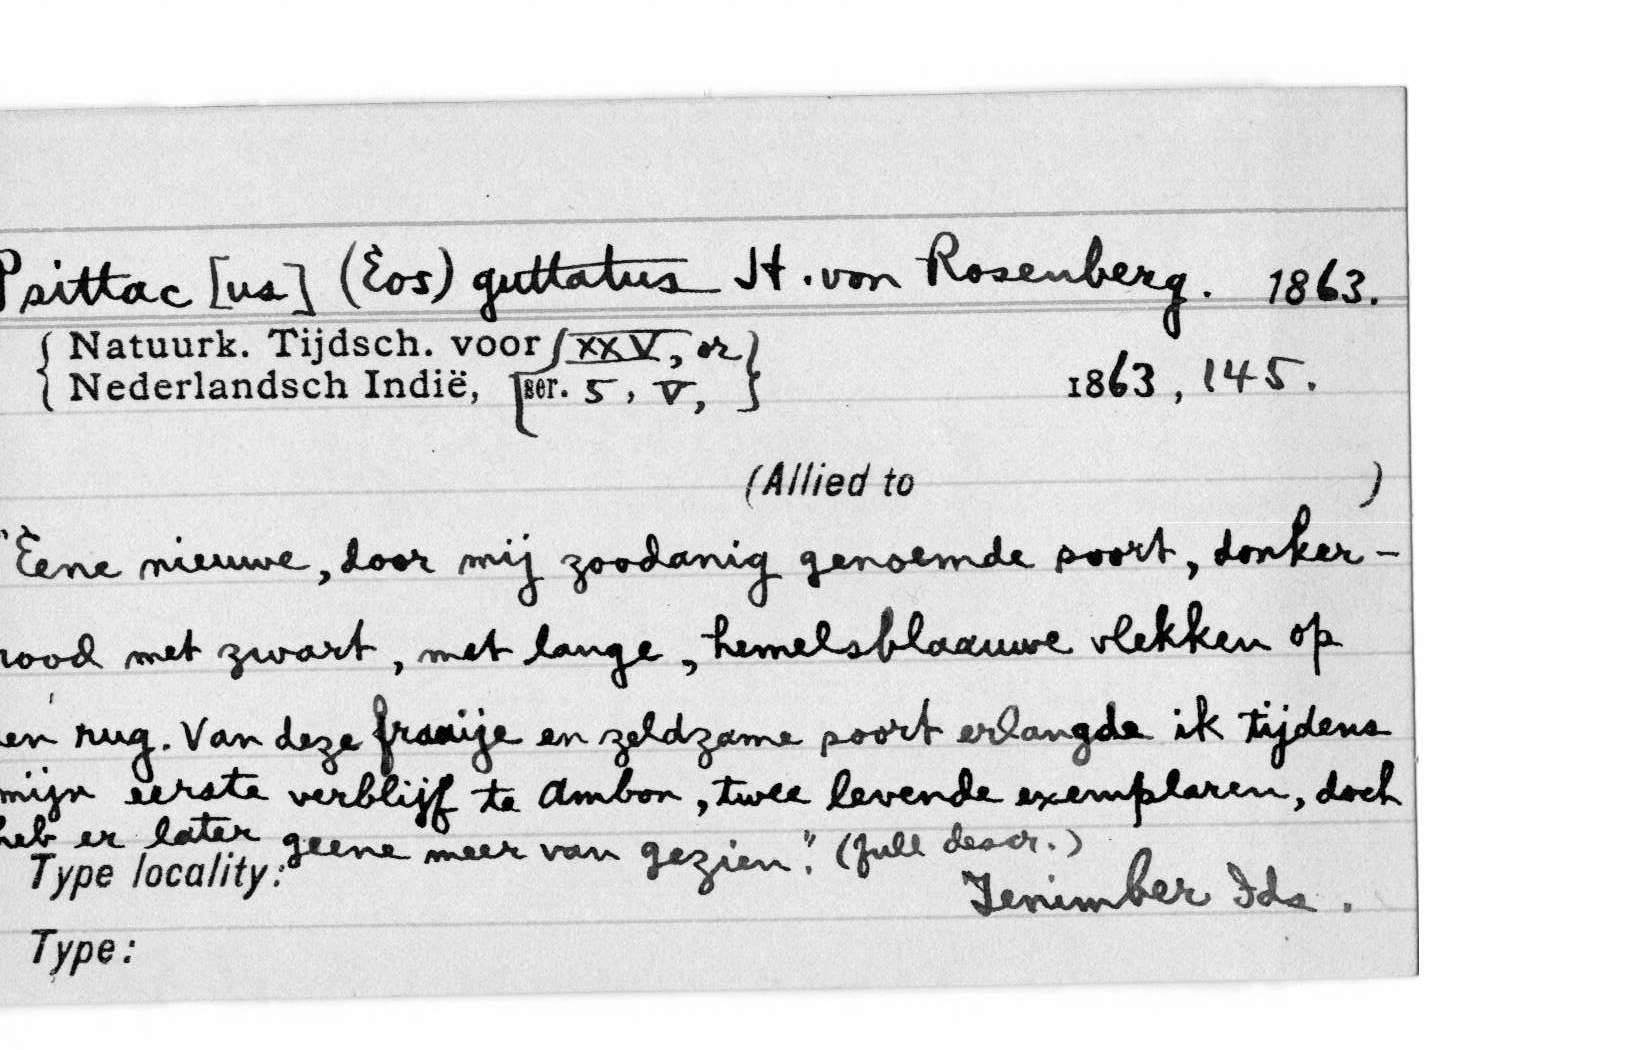 Psittac [us] (Eos) guttatus H. von Rosenberg. 1863.
Natuurk. Tijdsch. voor XXV, or
Nederlandsch Indië, ser. 5, V, 1863, 145.
(Allied to )
"Eene nieuwe, door mij zoodanig genoemde soort, donker-
rood met zwart, met lange, hemelsblaauwe vlekken op
en rug. Van deze fraaije en zeldzame soort erlangde ik tijdens
mijn eerste verblijf te Ambon, twee levende exemplaren, doch
heb er later geene meer van gezien." (full descr.)
Type locality: Tenimber Ids.
Type: